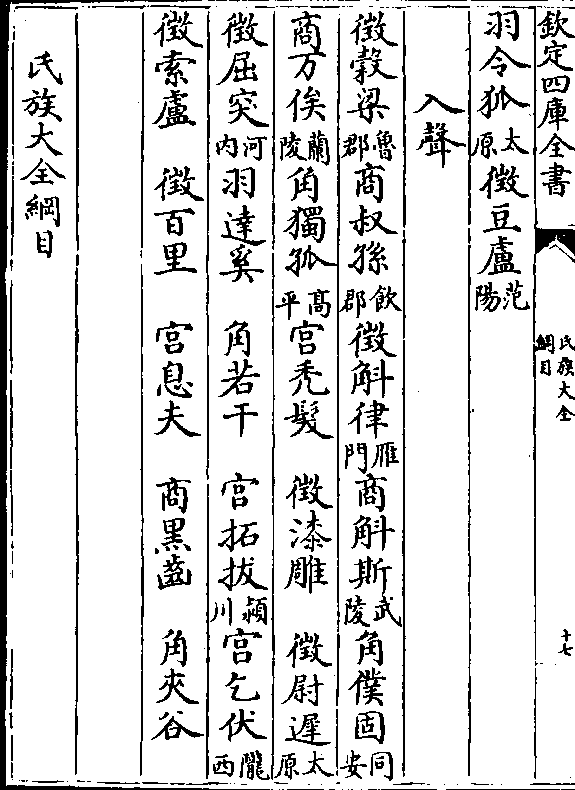 欽定四庫全書
氏族大全
綱目
十七
羽令狐太原徵豆盧范陽
入聲
徵穀梁魯郡商叔孫飲郡徵斛律雁門商斛斯武陵角僕固同安
商万俟蘭陵角獨孤高平宫禿髮徵漆雕徵尉遲太原
徵屈突河内羽達奚角若干宫拓拔潁川宫乞伏隴西
徵索盧徵百里宫息夫商黒齒角夾谷
氏族大全綱目